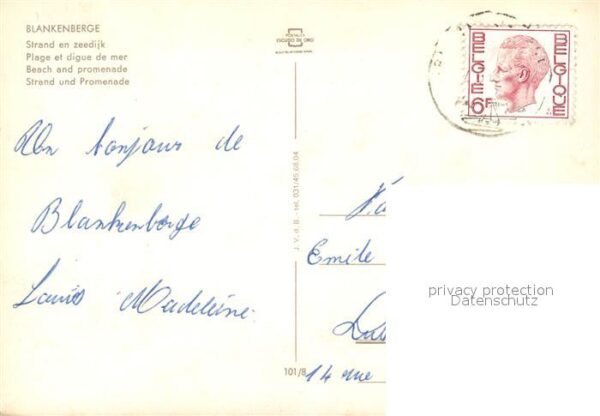 BLANKENBERGE
Strand en zeedijk
Plage et digue de mer
Beach and promenade
Strand und Promenade
BELGIE BELGIQUE
6F
Un bonjour de
Blankenberge
Louis Madeleine.
J. V. d. B. - tel. 031/45.68.04
101/8
Emile
14 rue
privacy protection
Datenschutz